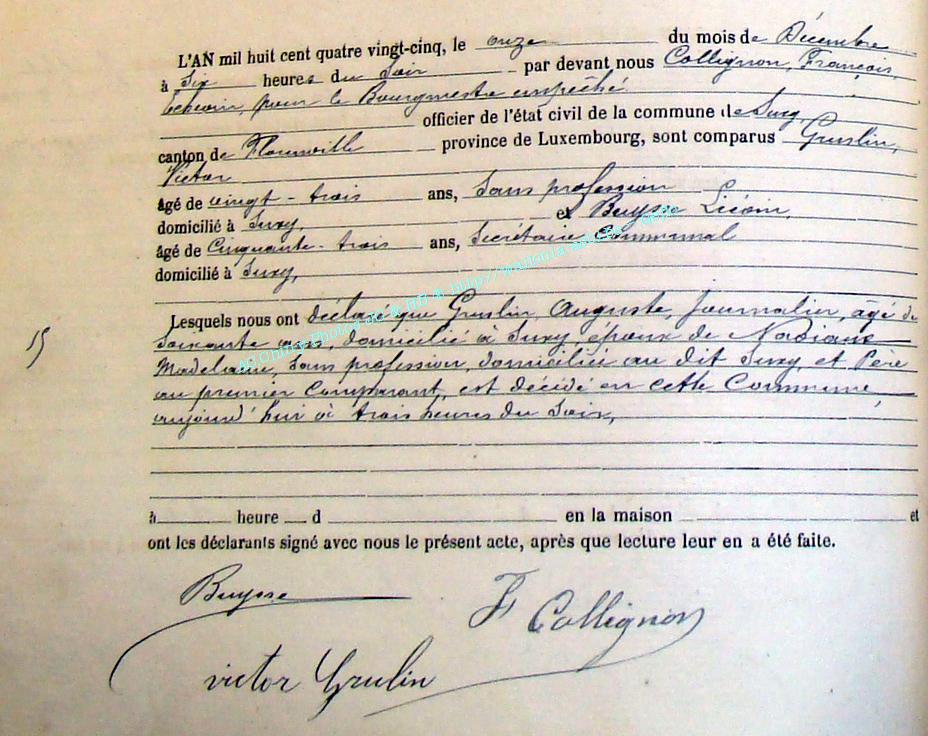 L'AN mil huit cent quatre vingt-cinq, le onze du mois de Décembre
à Six heures du Soir par devant nous Collignon, François,
Echevin, pour le Bourgmestre empêché
officier de l'état civil de la commune de Suxy,
canton de Florenville province de Luxembourg, sont comparus Gruslin,
Victor
âgé de vingt-trois ans, Sans profession
domicilié à Suxy, et Buysse
âgé de Cinquante-trois ans, Secrétaire Communal
domicilié à Suxy,
Lesquels nous ont déclaré que Gruslin, Auguste, Journalier, âgé de
Soixante ans, domicilié à Suxy, époux de
Madelaine, Sans profession, domiciliée au dit Suxy, et Père
au premier Comparant, est décédé en cette Commune,
aujourd'hui à trois heures du Soir,
à heure d en la maison et
ont les déclarants signé avec nous le présent acte, après que lecture leur en a été faite.
Buysse
F Collignon
victor Gruslin